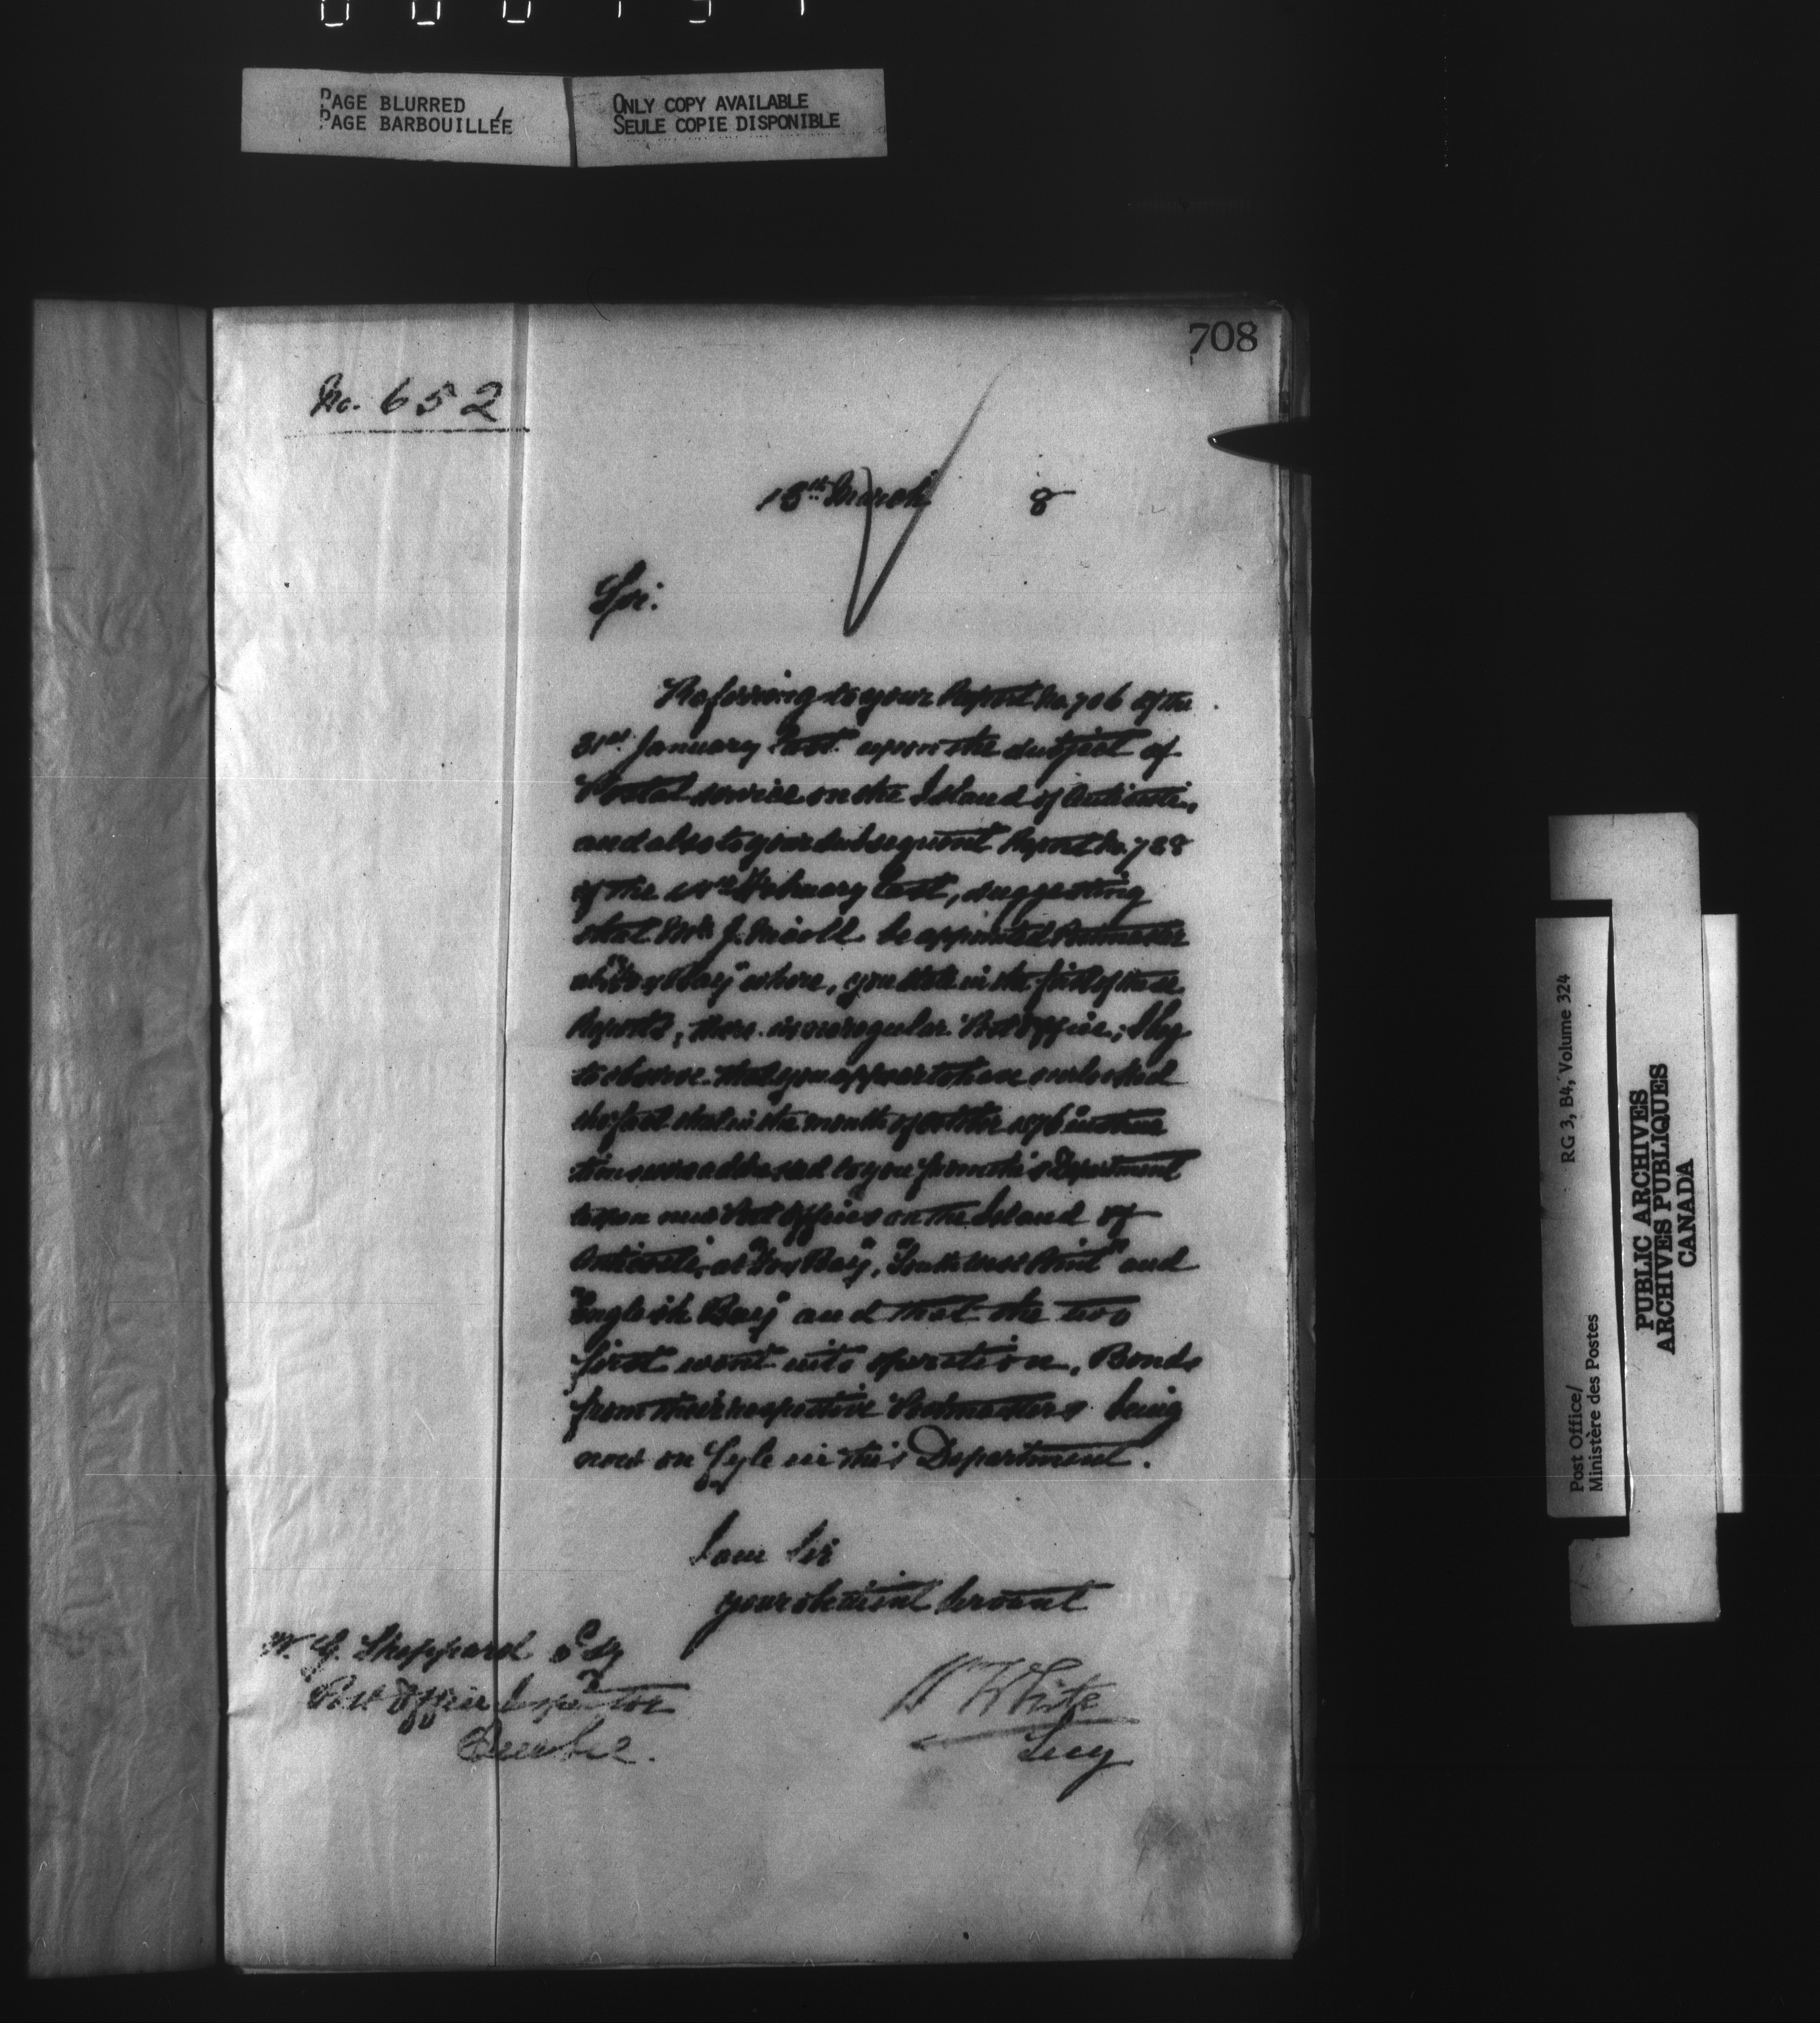 PAGE BLURRED
PAGE BARBOUILLÉE
ONLY COPY AVAILABLE
SEULE COPIE DISPONIBLE
708
No. 652
March 8
Sir:
Referring to your Report No. 706 of the
31st January last upon the subject of
Postal service on the Island of Anticosti,
and also to your subsequent Report No.
of the February last, suggesting
that Mr. J. Nicoll be appointed Postmaster
at "Fox Bay" where, you state in the first of these
Reports, there is no regular Post Office; I beg
to observe that you appear to have overlooked
the fact that in the month of October 1876 instruc
tions were addressed to you from this Department
to open new Post Offices on the Island of
Anticosti, at "Fox Bay", "South West Point" and
"English Bay" and that the two
first went into operation, Bonds
from their respective Postmasters being
now on fyle in this Department.
I am Sir
your obedient servant
W. G. Sheppard Esq
Post Office Inspector
Quebec.
White
Secy
RG 3, B4, Volume 324
Post Office/
Ministère des Postes
PUBLIC ARCHIVES
ARCHIVES PUBLIQUES
CANADA